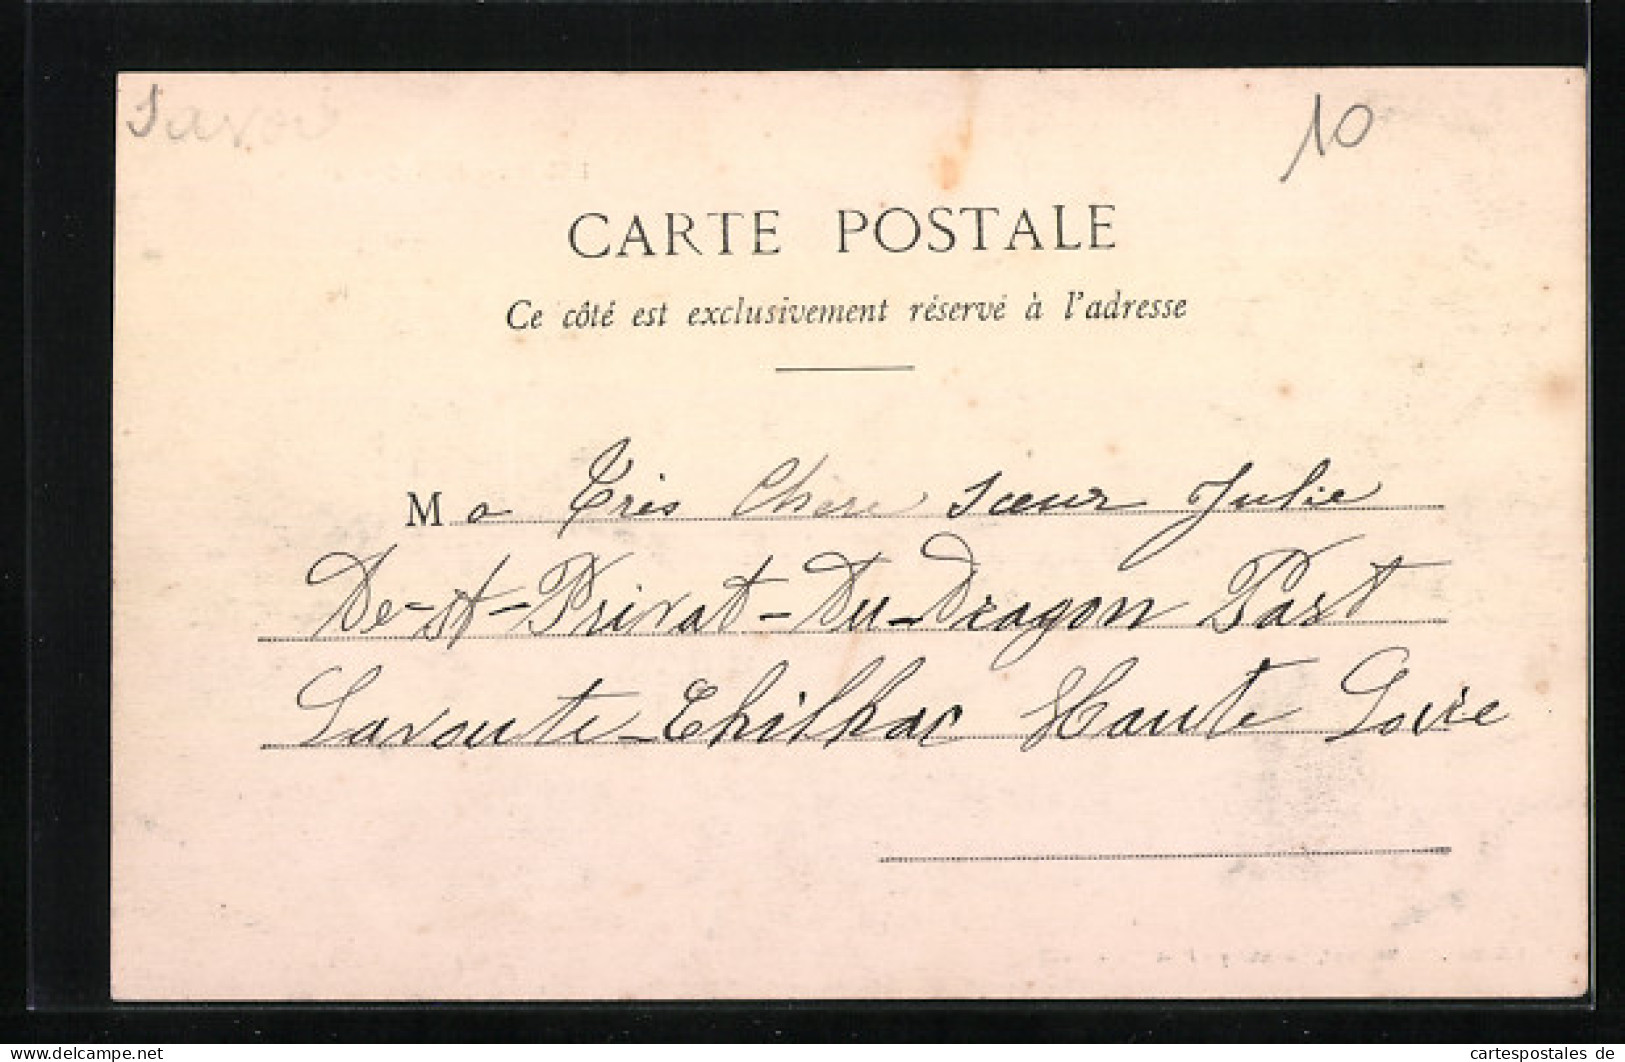 Savoie
10
CARTE POSTALE
Ce côté est exclusivement réservé à l'adresse
Ma Très Chère Sœur Julie
De-St-Privat-Du-Dragon Par
Lavoute-Chilhac Haute Loire
cartespostales de
www.delcampe.net